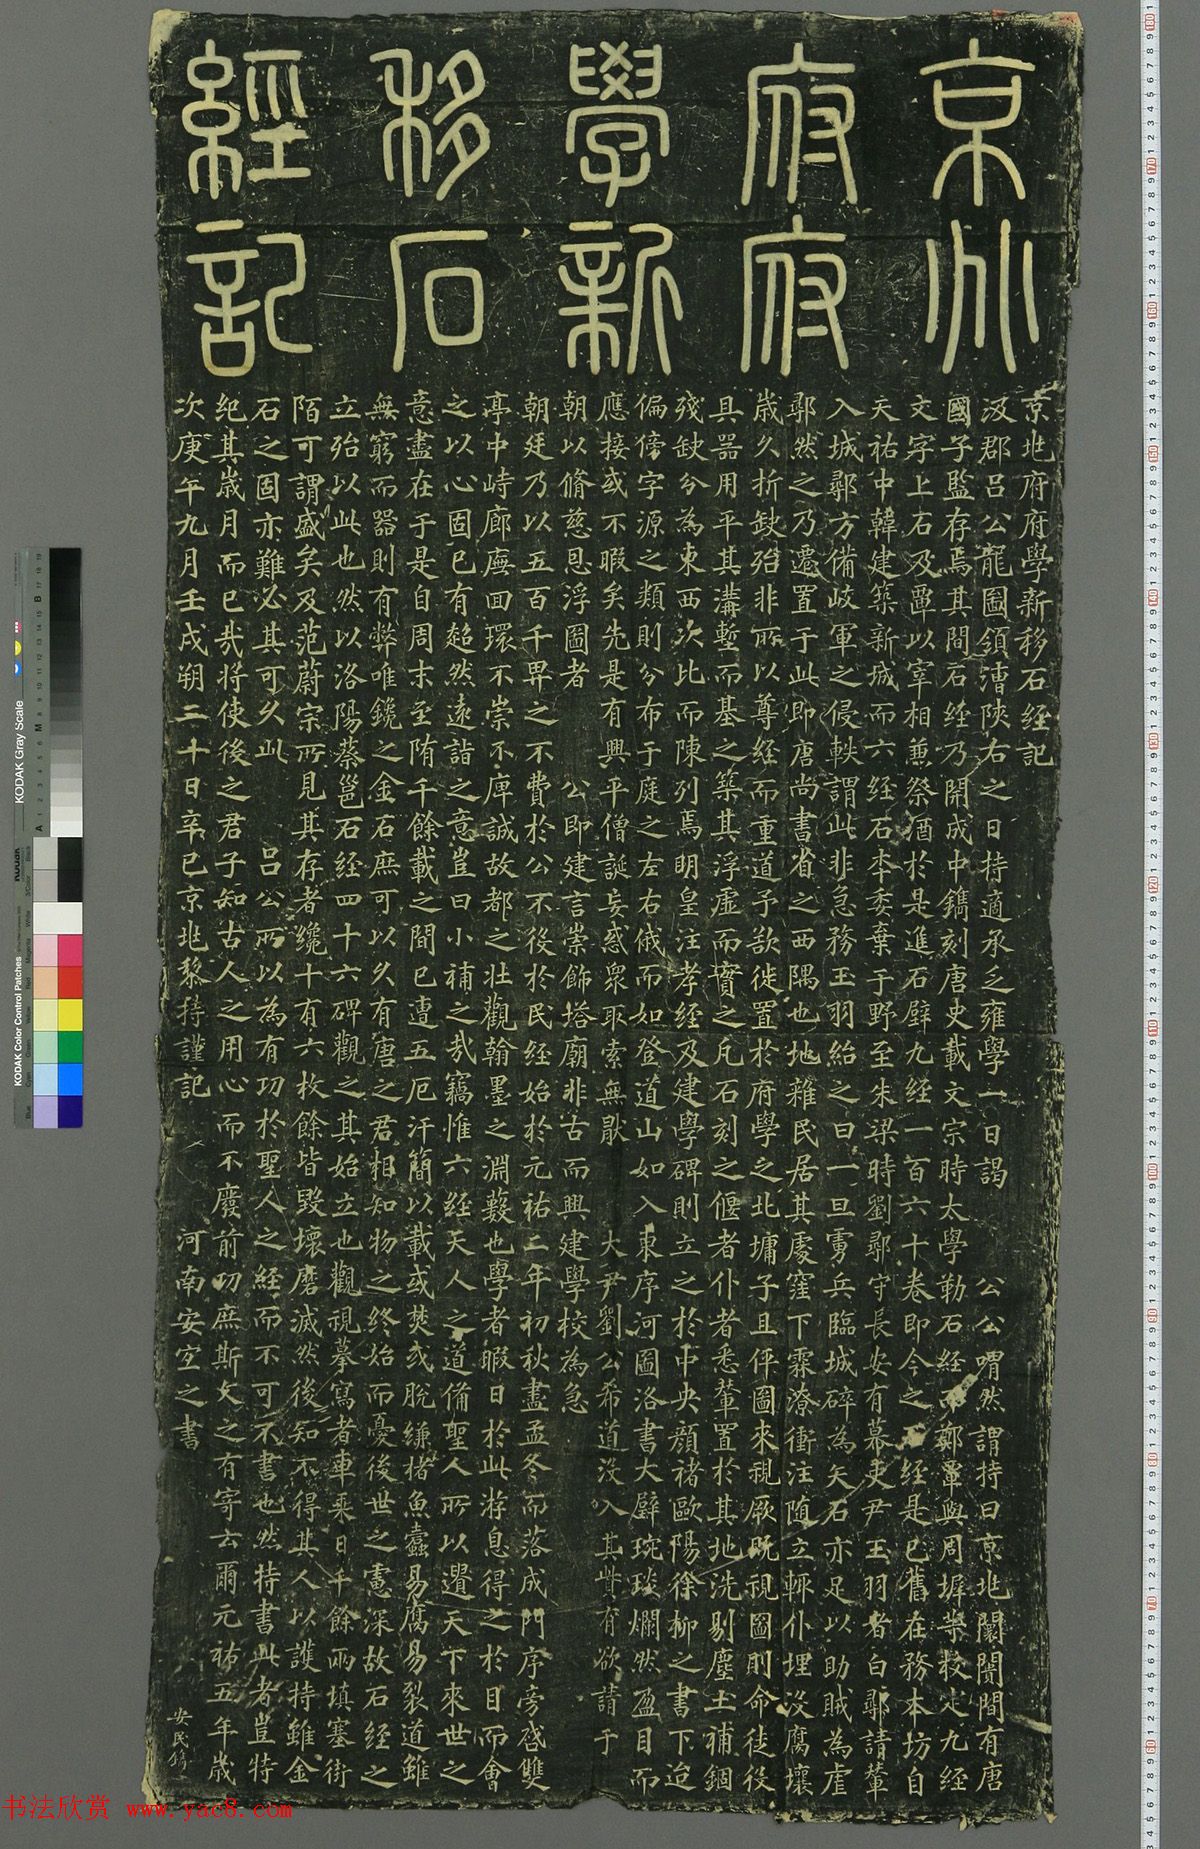 京兆
府府
學新
移石
經記
京兆府府學新移石經記
汲郡呂公龍圖領漕陝右之日持適承乏雍學一日謁 公公喟然謂持曰京兆闤闠間有唐
國子監存焉其間石經乃開成中鐫刻唐史載文宗時太學勒石經而鄭覃與周墀等校定九經
文字上石及覃以宰相兼祭酒於是進石壁九經一百六十卷即今之石經是已舊在務本坊自
天祐中韓建築新城而六經石本委棄于野至朱梁時劉鄩守長安有幕吏尹玉羽者白鄩請輦
入城鄩方備岐軍之侵軼謂此非急務玉羽紿之曰一旦虜兵臨城碎為矢石亦足以助賊為虐
鄩然之乃遷置于此即唐尚書省之西隅也地雜民居其處窪下霖潦衝注随立輒仆埋沒腐壤
歲久折缺殆非所以尊經而重道予欲徙置於府學之北墉子且伻圖來視厥既視圖則命徒役
具器用平其溝塹而基之築其浮虛而實之凡石刻之偃者仆者悉輦置於其地洗剔塵土補錮
殘缺分為東西次比而陳列焉明皇注孝經及建學碑則立之於中央顏褚歐陽徐柳之書下迨
偏傍字源之類則分布于庭之左右俄而如登道山如入東序河圖洛書大璧琬琰爛然盈目而
應接或不暇矣先是有興平僧誕妄惑眾取索無猒 大尹劉公希道沒入其貲有欲請于
朝以脩慈恩浮圖者 公即建言崇飾塔廟非古而興建學校為急
朝廷乃以五百千畀之不費於公不役於民經始於元祐二年初秋盡孟冬而落成門序旁啓雙
亭中峙廊廡回環不崇不庳誠故都之壯觀翰墨之淵藪也學者暇日於此游息得之於目而會
之以心固已有超然遠詣之意豈曰小補之哉竊惟六經天人之道備聖人所以遺天下來世之
意盡在于是自周末至隋千餘載之間已遭五厄汗簡以載或焚或脫縑楮魚蠹易腐易裂道雖
無窮而器則有弊唯鑱之金石庶可以久有唐之君相知物之終始而憂後世之慮深故石經之
立殆以此也然以洛陽蔡邕石經四十六碑觀之其始立也觀視摹寫者車乘日千餘兩填塞街
陌可謂盛矣及范蔚宗所見其存者纔十有六枚餘皆毀壞磨滅然後知不得其人以護持雖金
石之固亦難必其可久此 呂公所以為有功於聖人之經而不可不書也然持書此者豈特
紀其歲月而已哉將使後之君子知古人之用心而不廢前功庶斯文之有寄云爾元祐五年歲
次庚午九月壬戌朔二十日辛巳京兆黎持謹記 河南安宜之書
安民鐫
書法欣赏 www.yac8.com
KODAK Gray Scale
KODAK Color Control Patches